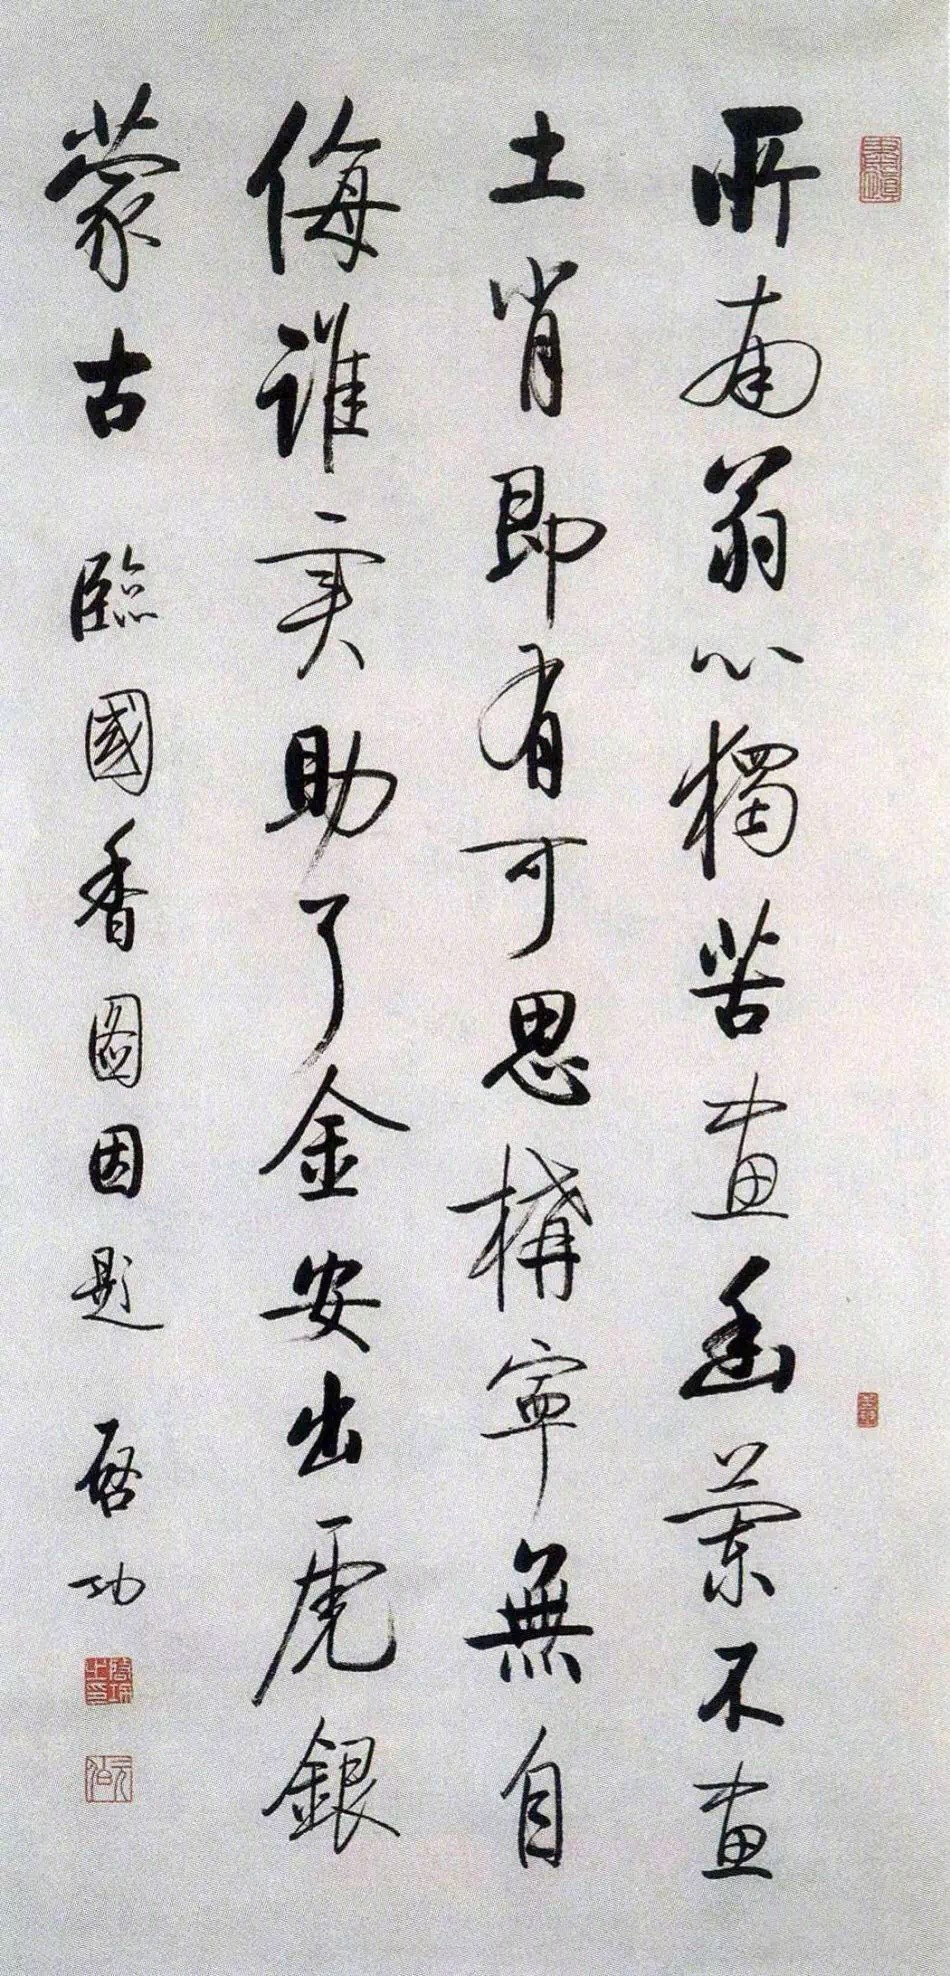 所南翁心獨苦畫幽蘭不畫
土肖即有可思構寧無自
侮誰实助了金安出虎銀
蒙古 臨國香圖因題 啟功